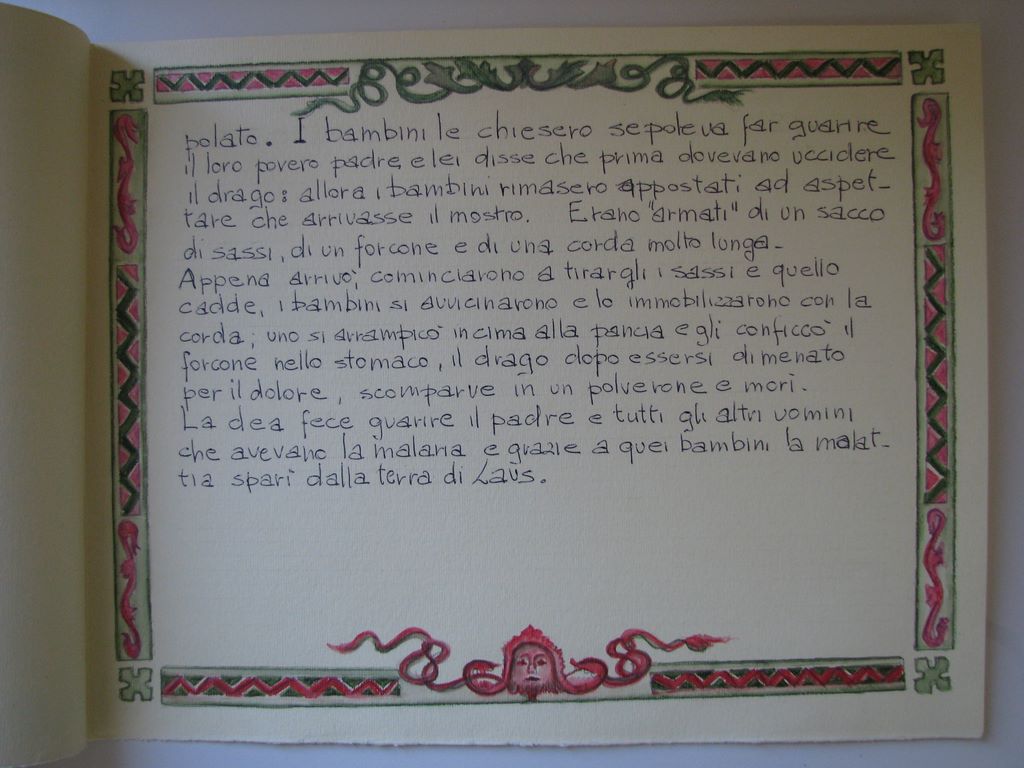 polato. I bambini le chiesero se poteva far guarire
il loro povero padre, e lei disse che prima dovevano uccidere
il drago: allora i bambini rimasero appostati ad aspet-
tare che arrivasse il mostro. Erano "armati" di un sacco
di sassi, di un forcone e di una corda molto lunga.
Appena arrivò, cominciarono a tirargli i sassi e quello
cadde, i bambini si avvicinarono e lo immobilizzarono con la
corda; uno si arrampicò in cima alla pancia e gli conficcò il
forcone nello stomaco, il drago dopo essersi dimenato
per il dolore, scomparve in un polverone e morì.
La dea fece guarire il padre e tutti gli altri uomini
che avevano la malaria e grazie a quei bambini la malat-
tia sparì dalla terra di Laüs.